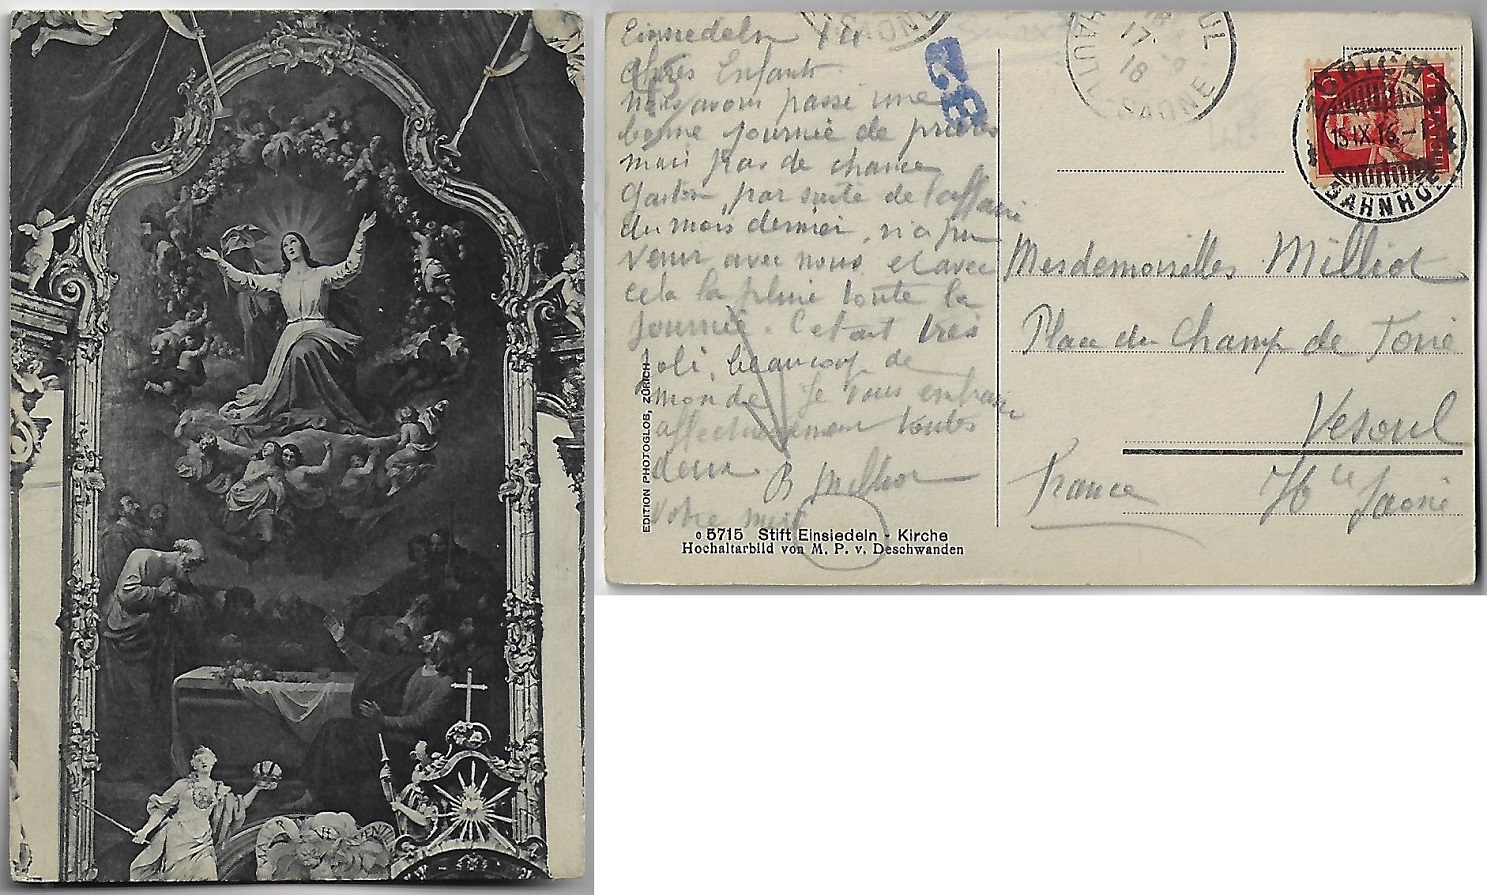 Einsiedeln
Chères Enfants
nous avons passé une
bonne journée de prières
mais pas de chance
Gaston par suite de l'affaire
du mois dernier, n'a pu
venir avec nous et avec
cela la pluie toute la
journée. C'etait très
joli, beaucoup de
monde. Je vous embrasse
affectueusement toutes
deux
votre
Mesdemoiselles Milliot
Place du Champ de Foire
Vesoul
France Hte Saône
BAHNHOF
HELVETIA
EDITION PHOTOGLOB, ZÜRICH
5715 Stift Einsiedeln - Kirche
Hochaltarbild von M. P. v. Deschwanden